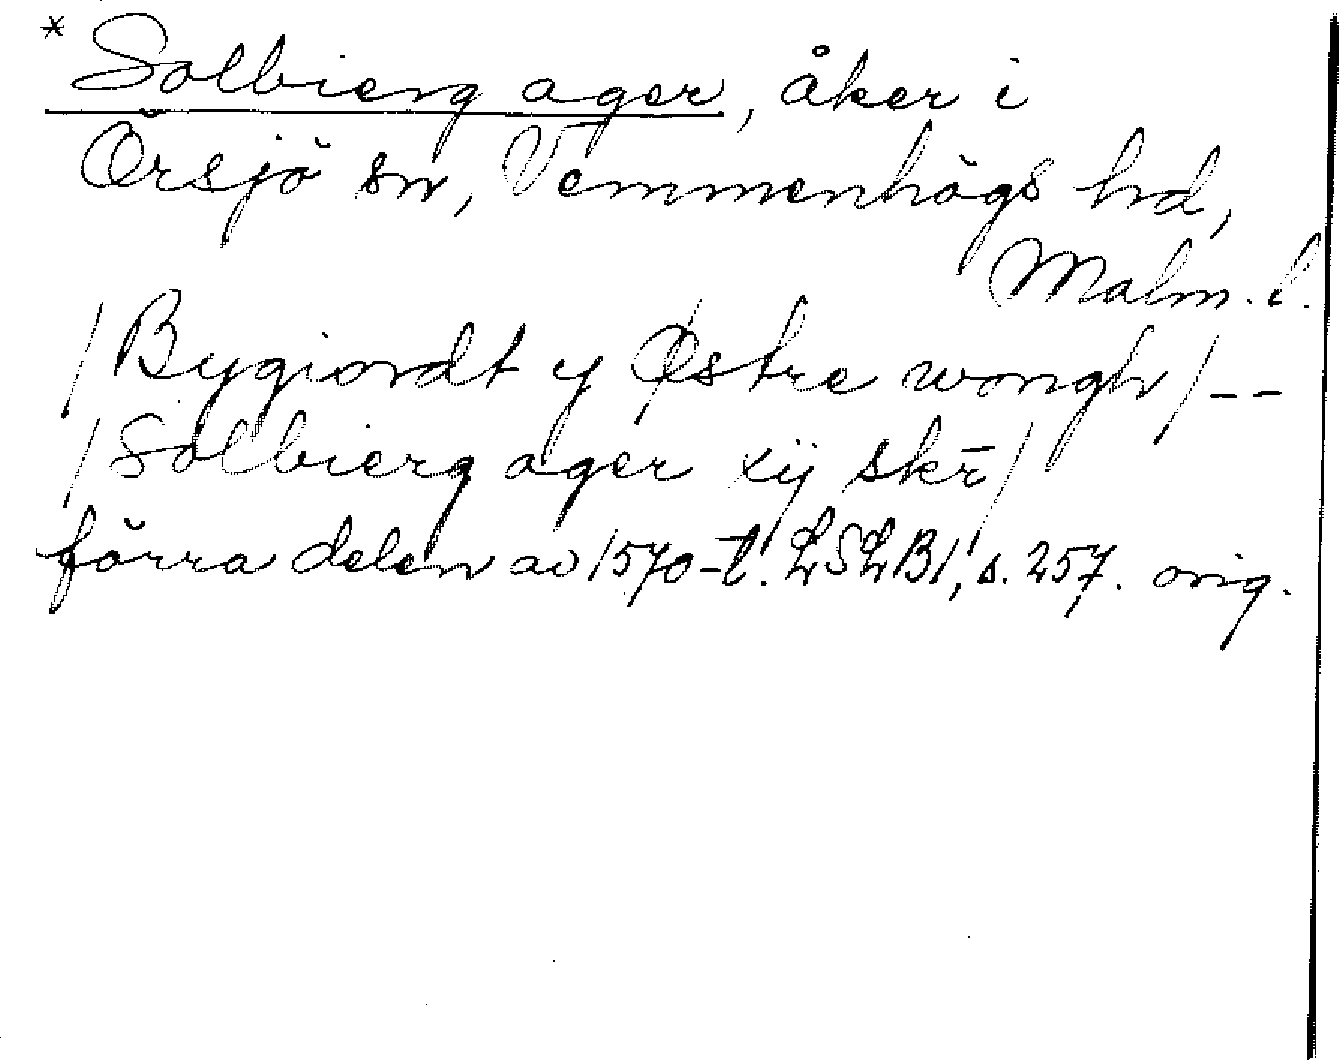 * Solbierg ager, åker i
Örsjö sn, Vemmenhögs hd,
Malm. l.
/Bygiordt y Østre wongh/--
/Solbierg ager xij skr̄/
förra delen av 1570-t. LSLB1, s. 257. orig.